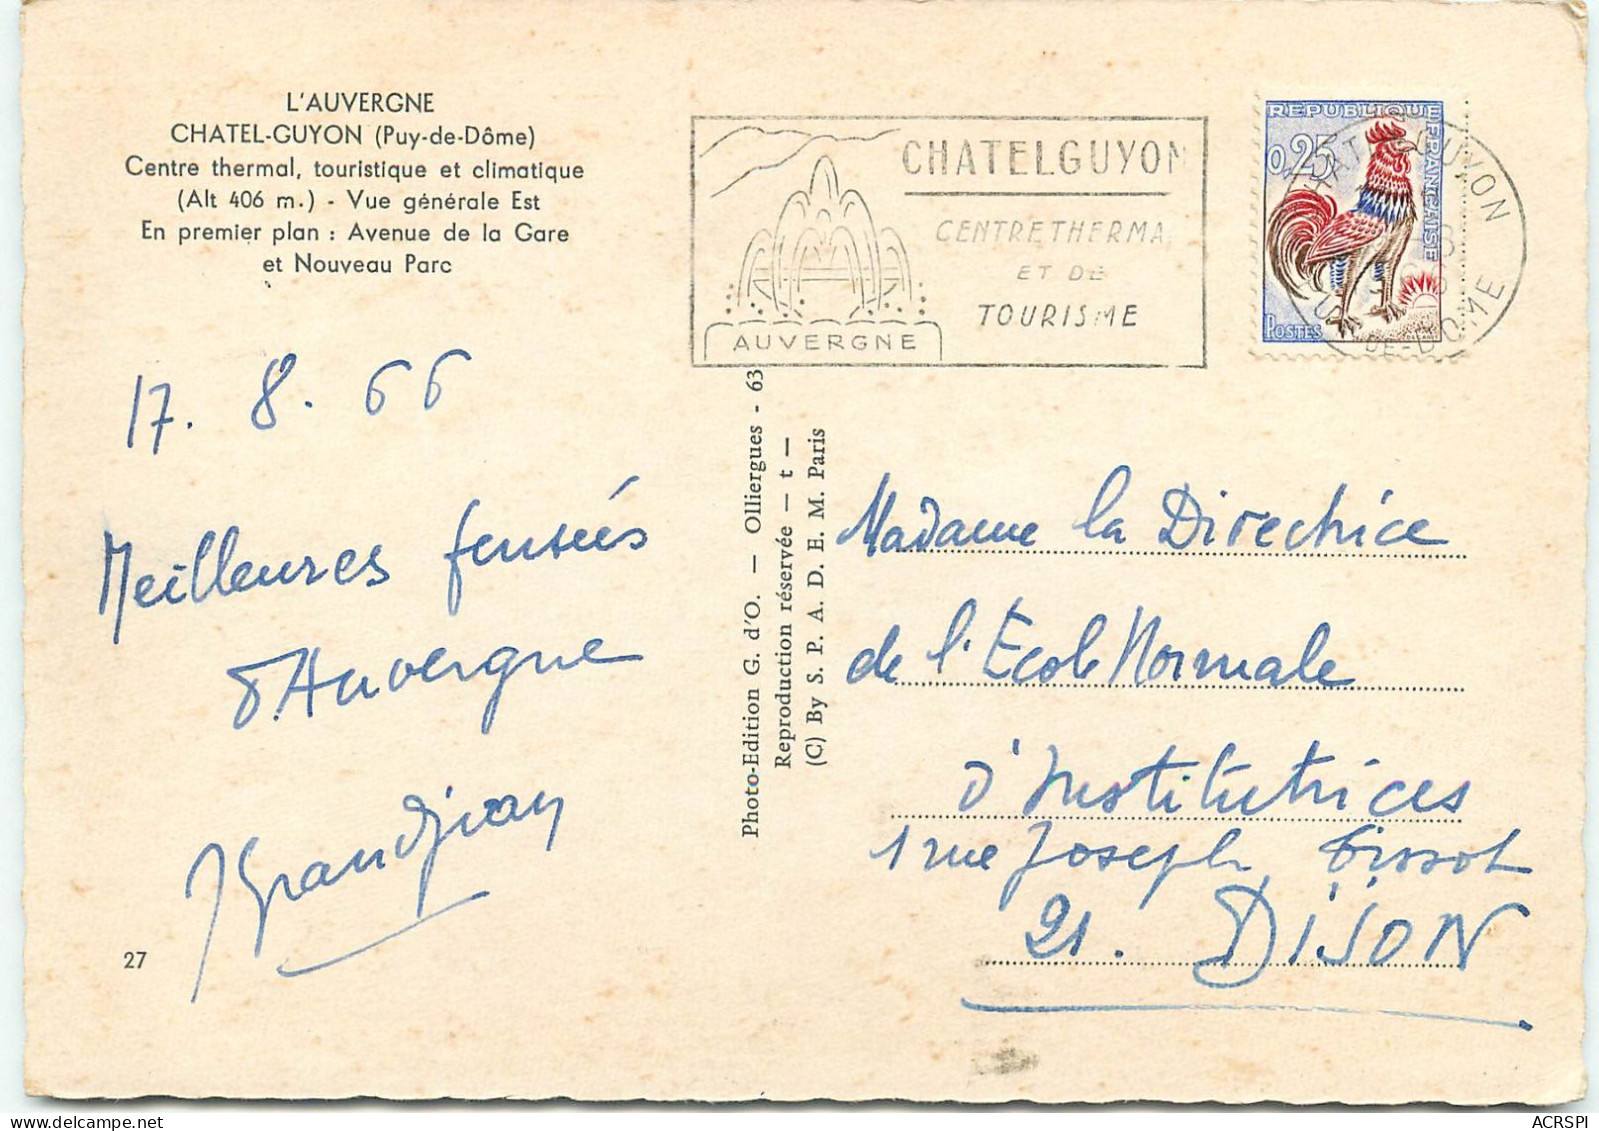 L'AUVERGNE
CHATEL-GUYON (Puy-de-Dôme)
Centre thermal, touristique et climatique
(Alt 406 m.) - Vue générale Est
En premier plan : Avenue de la Gare
et Nouveau Parc
CHATELGUYON
CENTRE THERMA
ET DE
TOURISME
AUVERGNE
REPUBLIQUE FRANÇAISE
0,25
POSTES
GUYON
DE-DOME
17. 8. 66
Meilleures pensées
d'Auvergne
JGrandjean
27
Photo-Edition G. d'O. — Olliergues - 63
Reproduction réservée — t —
(C) By S. P. A. D. E. M. Paris
Madame la Directrice
de l'Ecole Normale
d'Institutrices
1 rue Joseph Tissot
21. DIJON
delcampe.net
ACRSPI